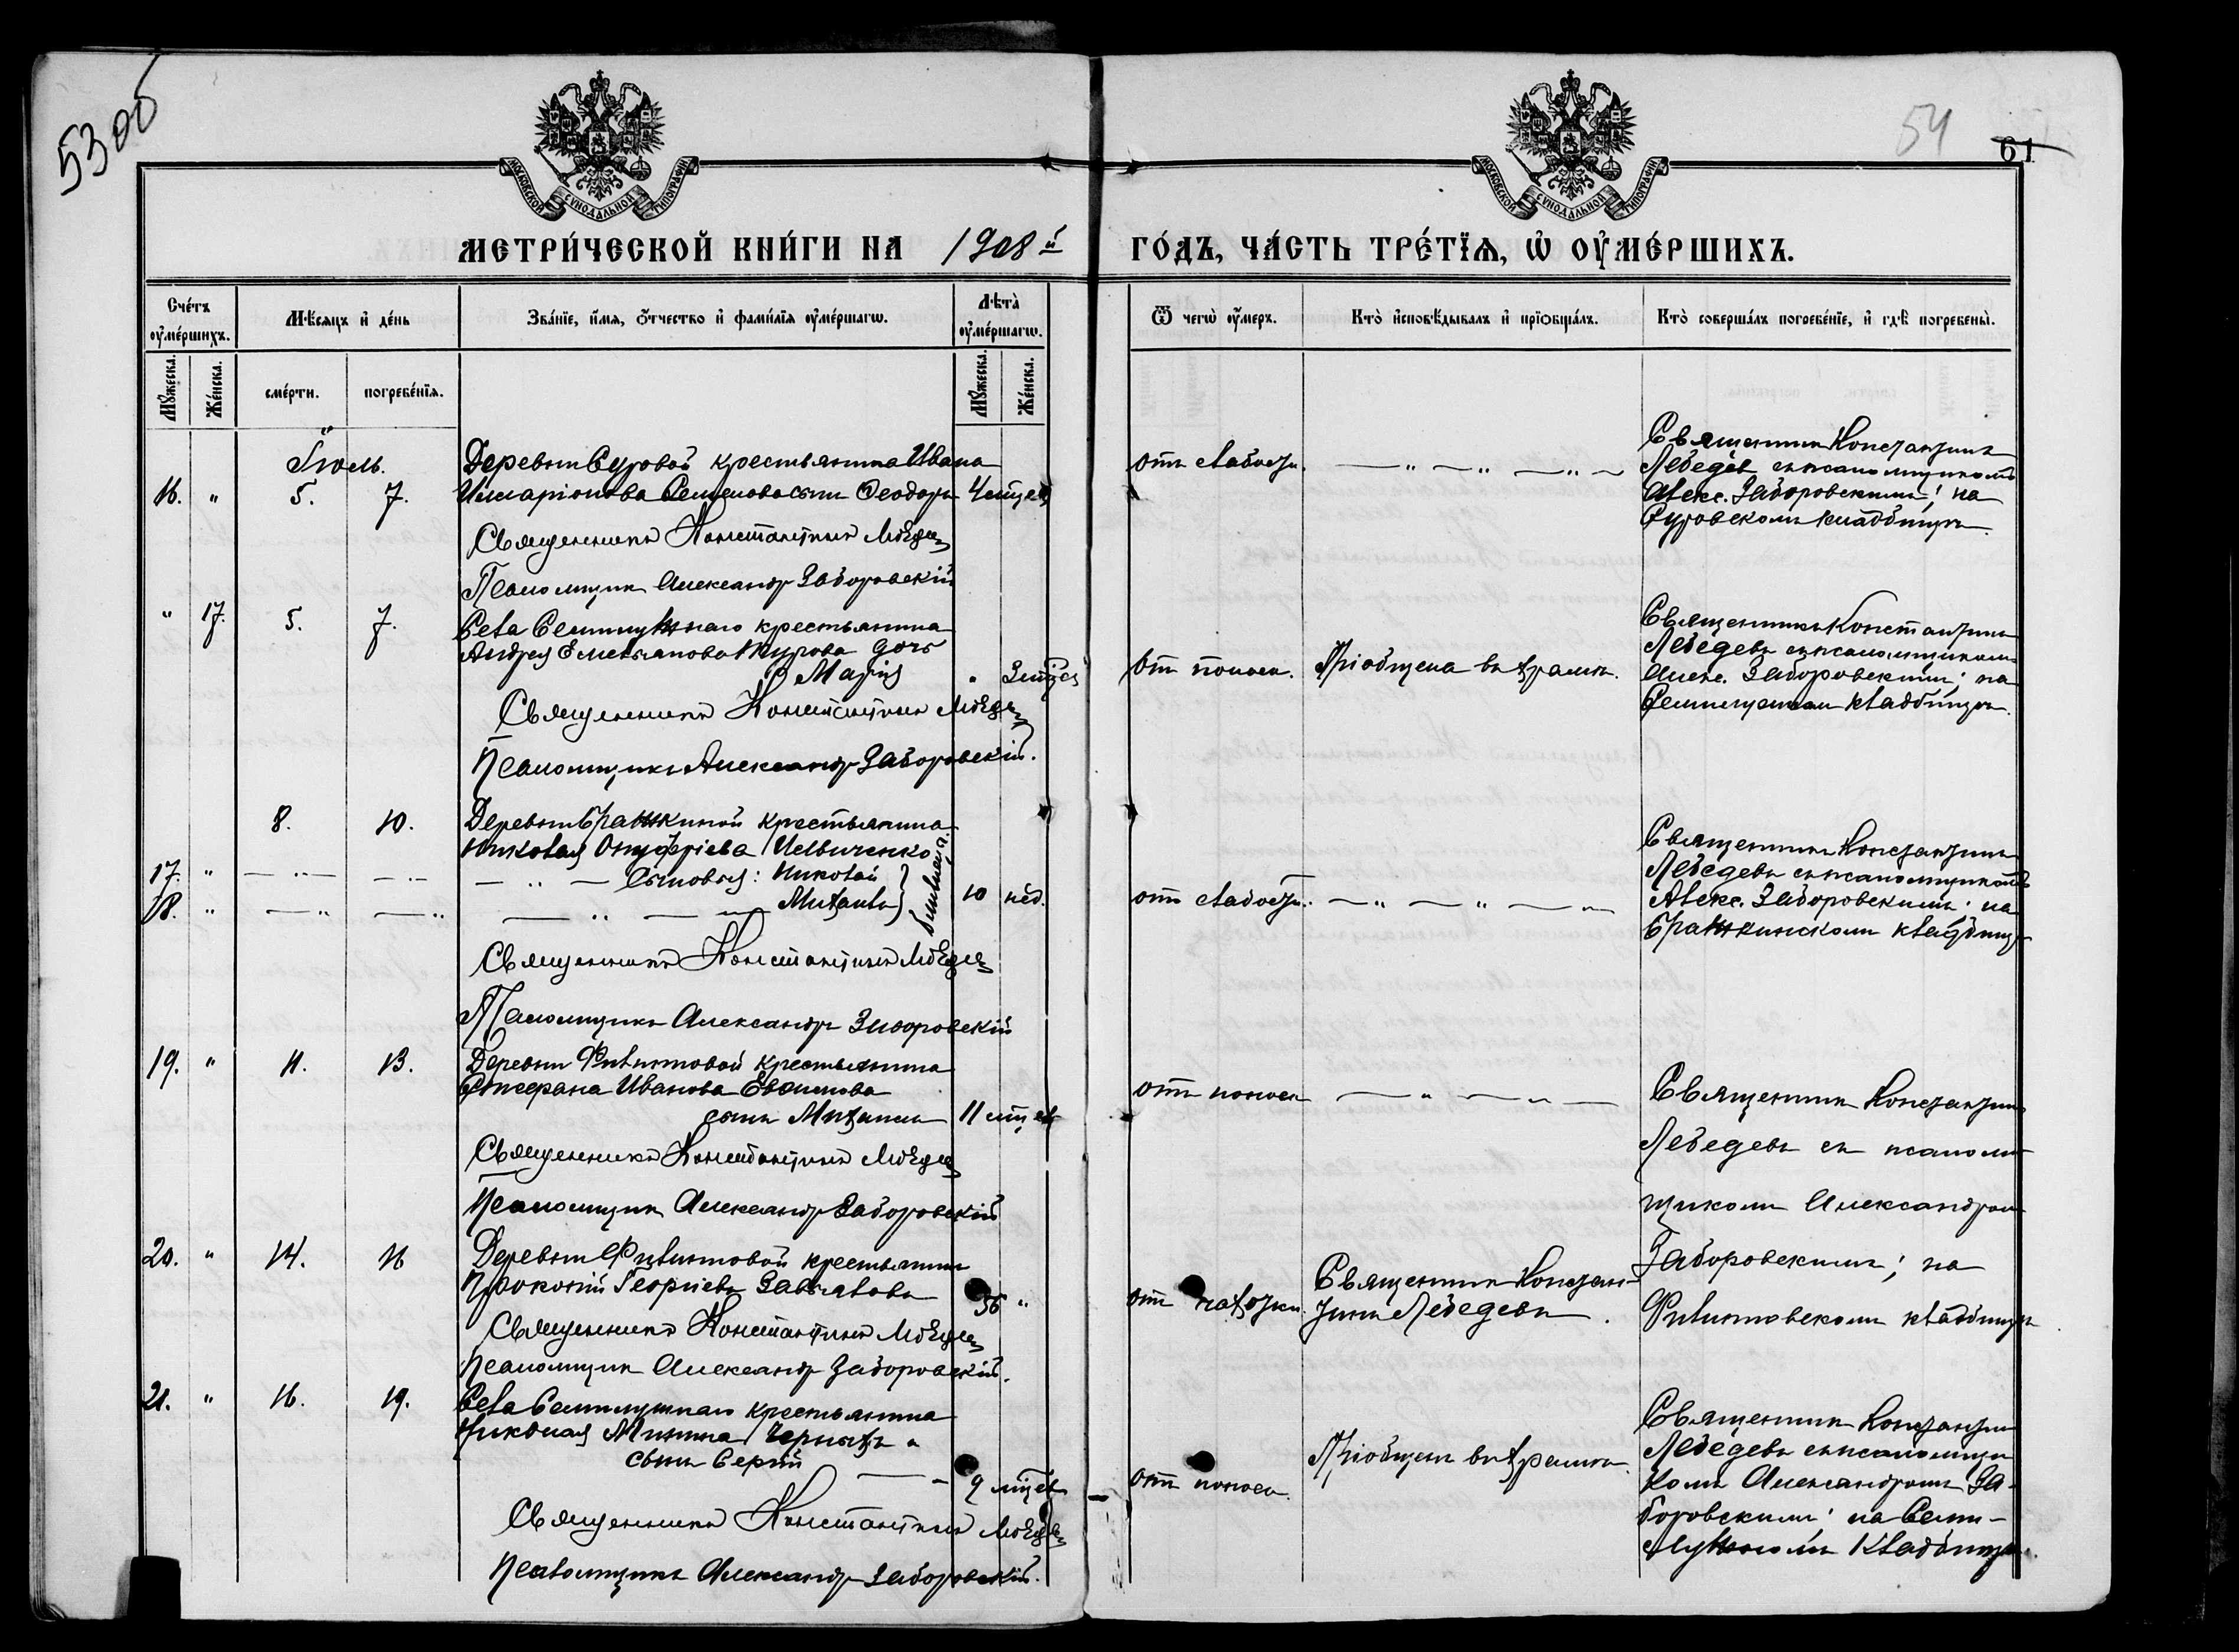 53 об
54
61
МОСКОВСКОЙ СѴНОДАЛЬНОЙ ТИПОГРАФІИ
МОСКОВСКОЙ СѴНОДАЛЬНОЙ ТИПОГРАФІИ
МЕТРИ́ЧЕСКОЙ КНИ́ГИ НА 1908й ГО́ДЪ, ЧА́СТЬ ТРЕ́ТЇѦ, Ѡ҆ ОУ҆МЕ́РШИХЪ.
Сче́тъ оу҆ме́ршихъ.
Мѣ́сяцъ и҆ де́нь
Зва́нїе, и҆́мя, ѻ҆́тчество и҆ фами́лїя оу҆ме́ршагѡ.
Лѣ́та оу҆ме́ршагѡ.
Ѿ чегѡ̀ оу҆́меръ.
Кто̀ и҆сповѣ́дывалъ и҆ прїѻбща́лъ.
Кто̀ соверша́лъ погребе́нїе, и҆ гдѣ̀ погребены̀.
Мꙋ́жеска.
Же́нска.
сме́рти.
погребе́нїя.
Мꙋ́жеска.
Же́нска.
Іюль.
16. " 5. 7.
Деревни Суровой крестьянина Ивана
Илларіонова Семенова сынъ Ѳеодоръ 4 мѣцев
Священникъ Константинъ Лебедевъ
Псаломщик Александр Заборовскій
отъ слабости.
Священник Константинъ
Лебедев съ псаломщикомъ
Алекс. Заборовскимъ; на
Суровском кладбищѣ.
" 17. 5. 7.
Села Семилужнаго крестьянина
Андрея Емельянова дочь
Марія " 3 мѣцев
Священникъ Константинъ Лебедевъ
Псаломщикъ Александр Заборовскій.
От поноса. Пріобщена въ храмѣ.
Священникъ Константинъ
Лебедевъ съ псаломщиком
Алекс. Заборовскимъ; на
кладбищѣ.
8. 10.
Деревни Бражкиной крестьянина
Николая Онуфріева
17. " Сыновья: Николай
18. " Михаилъ } близнецы 10 нед.
Священникъ Константинъ Лебедевъ
Псаломщикъ Александръ Заборовскій
отъ слабости.
Священникъ Константинъ
Лебедевъ съ псаломщикомъ
Алекс. Заборовскимъ; на
Бражкинском кладбищѣ
19. " 11. 13.
Деревни Филимоновой крестьянина
Стефана Иванова Евфимова
сынъ Михаилъ 11 мѣцев
Священникъ Константинъ Лебедевъ
Псаломщикъ Александр Заборовскій
отъ поноса
Священник Константинъ
Лебедевъ съ псалом-
щиком Александром
Заборовскимъ; на
Филимоновском кладбищѣ
20. " 14. 16
Деревни Филимоновой крестьянин
Прокопій Георгіевъ 56 "
Священникъ Константинъ Лебедевъ
Псаломщик Александр Заборовскій.
от чахотки.
Священник Констан-
тинъ Лебедевъ.
21. " 16. 19.
Села Семилужнаго крестьянина
Николая Минина Черныхъ
сынъ Сергій
9 мѣцев
Священникъ Константинъ Лебедевъ
Псаломщикъ Александр Заборовскій.
отъ поноса.
Пріобщенъ въ храмѣ.
Священник Константин
Лебедевъ съ псаломщи
комъ Александромъ За-
боровскимъ; на Семи-
лужномъ кладбищѣ.